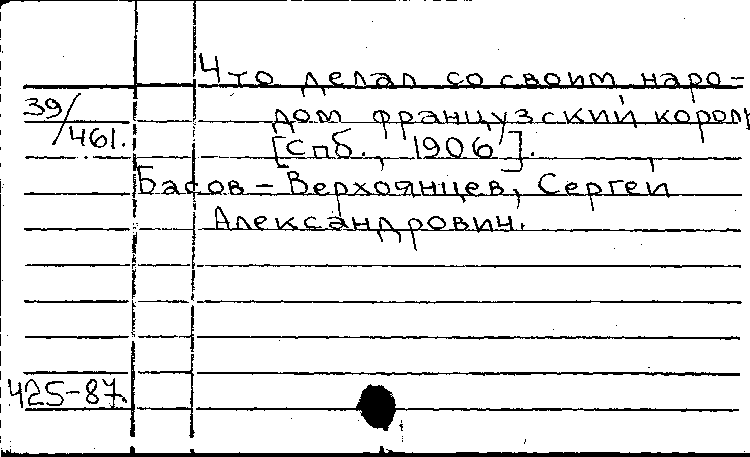 Что делал со своим наро-
39/461.
дом французский король
[Спб., 1906].
Басов-Верхоянцев, Сергей
Александрович.
425-87.